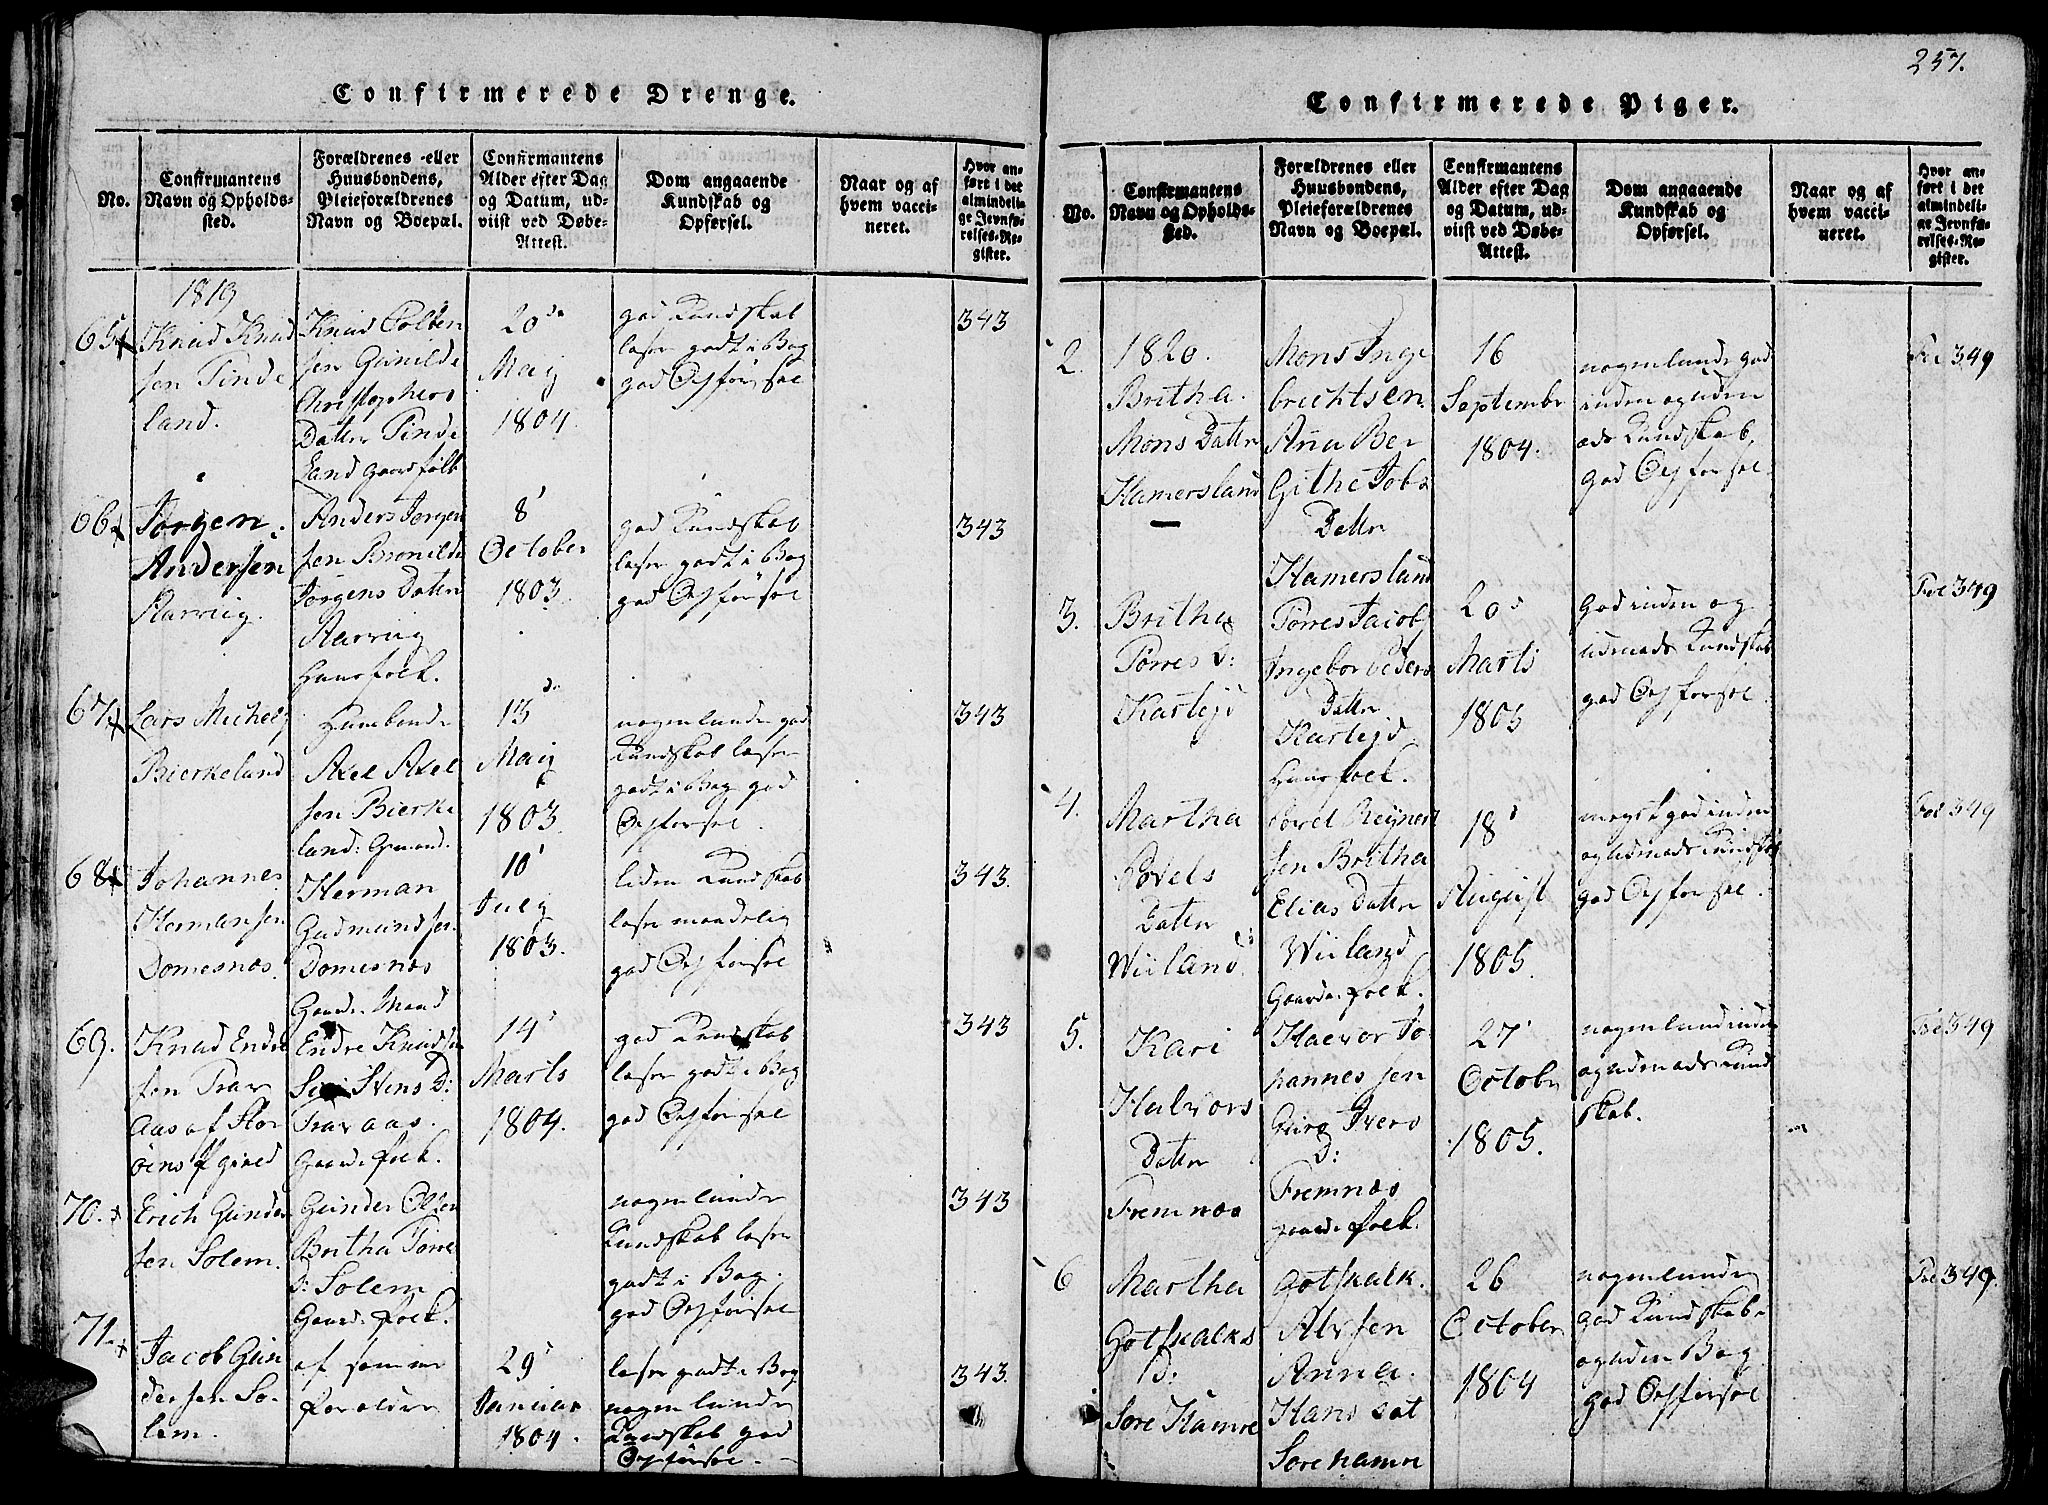 Confirmerede Drenge.
No.
Confirmantens
Navn og Opholds-
sted.
Forældrenes eller
Huusbondens,
Pleieforældrenes
Navn og Boepæl.
Confirmantens
Alder efter Dag
og Datum, ud-
viist ved Døbe-
Attest.
Dom angaaende
Kundskab og
Opførsel.
Naar og af
hvem vacci-
neret.
Hvor an-
ført i det
almindeli-
ge Jevnfø-
relses-Re-
gister.
1819
65
Knud Knud
sen Tinde
land.
Knud Colben
sen Gunilde
Christophers
Datter Tinde
Land Gaardfolk
20de
Maij
1804.
god Kundskab
læser godt i Bog
god Opførsel
343
66
Jørgen
Andersen
Aarvig.
Anders Jørgen
sen
Jørgens Datter
Aarvig
Huusfolk.
8
October
1803.
god Kundskab
læser godt i Bog
god Opførsel
343
67
Lars Michels
Bierkeland
Huusbonde
Axel Axel
sen Bierke
land: Gmand.
13de
Maij
1803.
nogenlunde god
Kundskab læser
godt i Bog god
Opførsel.
343
68
Johannes
Hermansen
Domesnæs.
Herman
Gudmundsen
Domesnæs
Gaard. Mand
10
July
1803.
liden Kundskab
læser maadelig
god Opførsel
343.
69.
Knud Endre
sen Tvær
Aas af
Endre Knudsen
Stens D:
Tværaas.
Gaard. folk.
14
Marts
1804.
god Kundskab
læser godt i Bog
god Opførsel
343
70.
Erich Gunder
sen Solem.
Gunder Olsen
Britha Torre
D: Solem
Gaard. folk.
nogenlunde
Kundskab læser
godt i Bog.
god Opførsel
343
71.
Jacob Gun
dersen So-
lem.
af samme
Forældre
29
Januar
1804.
læser godt i Bog
nogenlunde
Kundskab god
Opførsel.
343.
257.
Confirmerede Piger.
No.
Confirmantens
Navn og Opholds-
sted.
Forældrenes eller
Huusbondens,
Pleieforældrenes
Navn og Boepæl.
Confirmantens
Alder efter Dag
og Datum, ud-
viist ved Døbe-
Attest.
Dom angaaende
Kundskab og
Opførsel.
Naar og af
hvem vacci-
neret.
Hvor an-
ført i det
almindeli-
ge Jevnfø-
relses-Re-
gister.
2.
1820.
Britha.
Mons Datter
Hamersland
Mons Inge
brichtsen.
Ana Ber
Githe
Datter
Hamersland
16
Septembr
1804.
nogenlunde god
inden og uden
ads Kundskab,
god Opførsel.
Fol 349
3.
Britha
Torres D:
Torres Jacobs
Ingebor Peders
Datter
Huusfolk.
20
Marts
1805
God inden og
udenads Kundskab
god Opførsel.
Fol 349
4.
Martha
Povels
Datter
Wiiland
Povel Reijnert
sen Britha
Elias Datter
Wiiland
Gaard. folk.
18
August
1805.
meget god inden
og udenads Kundskab
god Opførsel.
Fol 349
5.
Kari
Halvors
Datter
Fremnæs
Halvor Jo-
hannessen
Guro Ivers
D:
Fremnæs
gaard. folk.
27
Octobr
1805.
nogenlund inden
og udenads Kund
skab.
Fol 349
6
Martha
Gotskalks
D:
Søre Hamre
Gotskalk.
Alvsen
Anna.
Hans Dat
Søre hamre
26
October
1804
nogenlunde
god Kundskab
og uden Bog
god Opførsel
Fol 349.